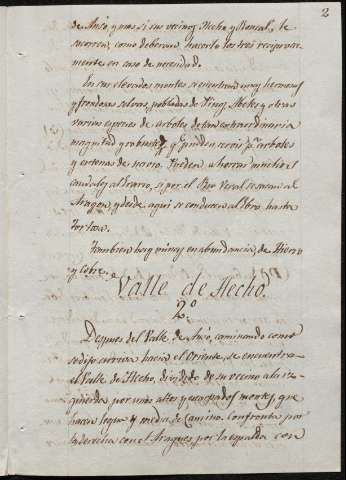 2
de Ansó, y mas si sus vecinos Hecho y Roncal, le
socorren, como deberan hacerlo los tres reciproca-
mente en caso de necesidad.
En sus elevados montes se encuentran muy hermosas
y frondosas selvas, pobladas de Pinos Abetes y otras
varias especies de arboles de tan extraordinaria
magnitud y robustez, q.e pueden servir p.a arboles
y entenas de navio. Pueden ahorrar muchos
caudales al Erario, si por el Rio Veral se sacan al
Aragon, y desde aqui se conducen al Ebro hasta
Tortosa.
Tambien hay minas en abundancia, de Hierro
y Cobre.
Valle de Hecho.
2.º
Despues del Valle de Ansó, caminando como
se dijo arriva hacia el Oriente, se encuentra
el Valle de Hecho, dividido de su vecino a la iz-
quierda por unos altos y escarpados montes, que
hacen legua y media de Camino. Confronta por
la derecha con el Aragues por la espalda con